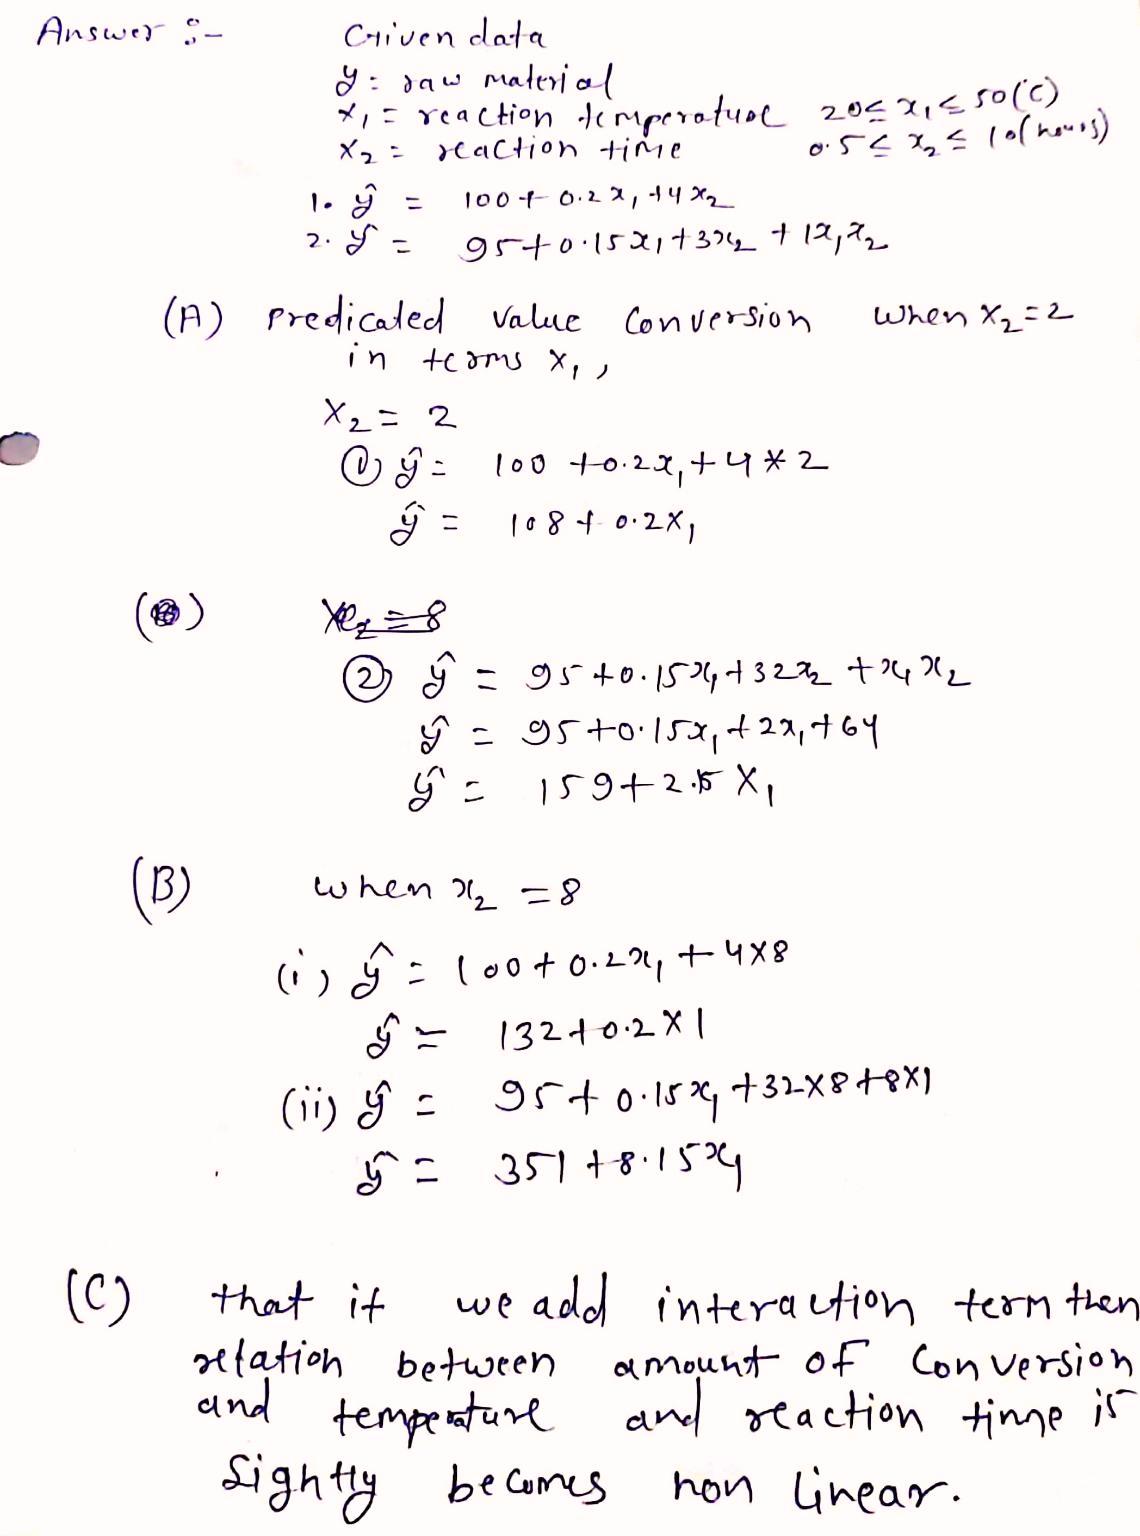 Answer :-
Given data
y = raw material
x₁ = reaction temperature 20≤ x₁ ≤ 50(C)
x₂ = reaction time 0.5 ≤ x₂ ≤ 10(hours)
1. ŷ = 100 + 0.2x₁ + 4x₂
2. ŷ = 95+0.15x₁+3x₂ + 1x₁x₂
(A) predicated value conversion when x₂=2
in terms x₁,
x₂ = 2
① ŷ = 100 +0.2x₁ + 4 * 2
ŷ = 108 + 0.2x₁
( ) x₂ = 8
② ŷ = 95+0.15x₁+32x₂ +x₁x₂
ŷ = 95+0.15x₁+2x₁+64
ŷ = 159+2.15 x₁
(B) when x₂ = 8
(i) ŷ = 100+0.2x₁ + 4×8
ŷ = 132+0.2×1
(ii) ŷ = 95+ 0.15x₁ +32×8+8×1
ŷ = 351 +8.15x₁
(C) that if we add interaction term then
relation between amount of conversion
and temperature and reaction time is
Sightly becomes non linear.